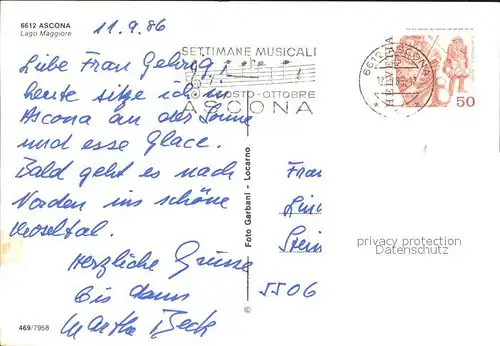 6612 ASCONA
Lago Maggiore
11.9.86
SETTIMANE MUSICALI
AGOSTO-OTTOBRE
ASCONA
6612 ASCONA
HELVETIA
50
Liebe Frau Gehrig,
heute sitze ich in
Ascona an der Sonne
und esse Glace.
Bald geht es nach
Norden ins schöne
Moseltal.
Herzliche Grüsse
bis dann
Martha Beck
Foto Garbani - Locarno
©
Frau
5506
privacy protection
Datenschutz
469/7958